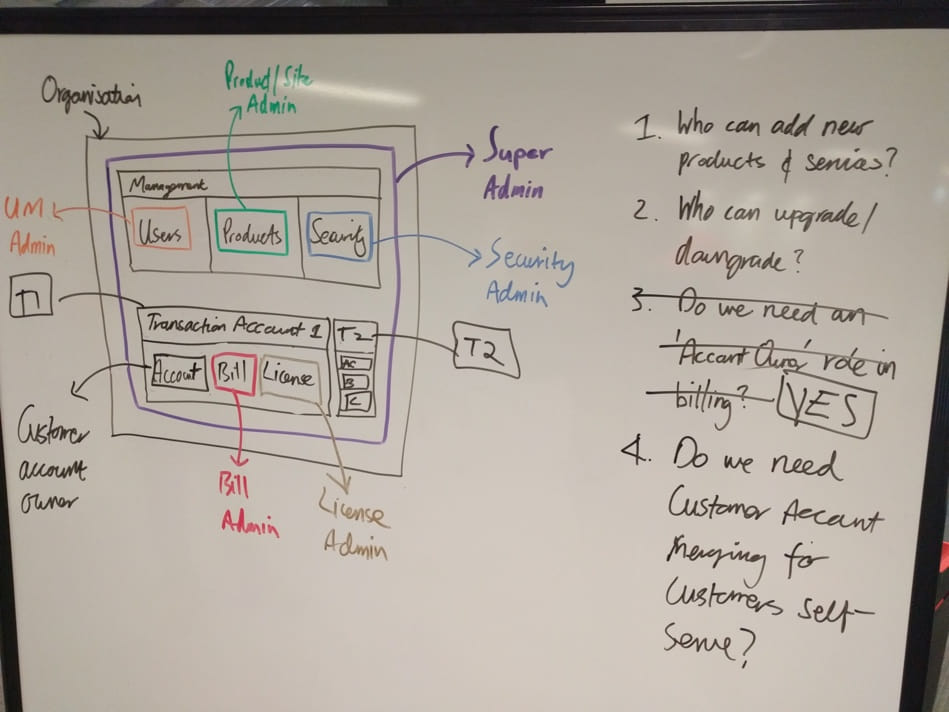 Organisation
Product/Site
Admin
Super
Admin
Management
Users
Products
Security
UM
Admin
Security
Admin
T1
Transaction Account 1
T2
T2
Account
Bill
License
AC
B
Customer
account
owner
Bill
Admin
License
Admin
1. Who can add new
products & services?
2. Who can upgrade/
downgrade?
3. Do we need an
'Account Owner' role in
billing? YES
4. Do we need
Customer Account
Merging for
Customers self-
serve?